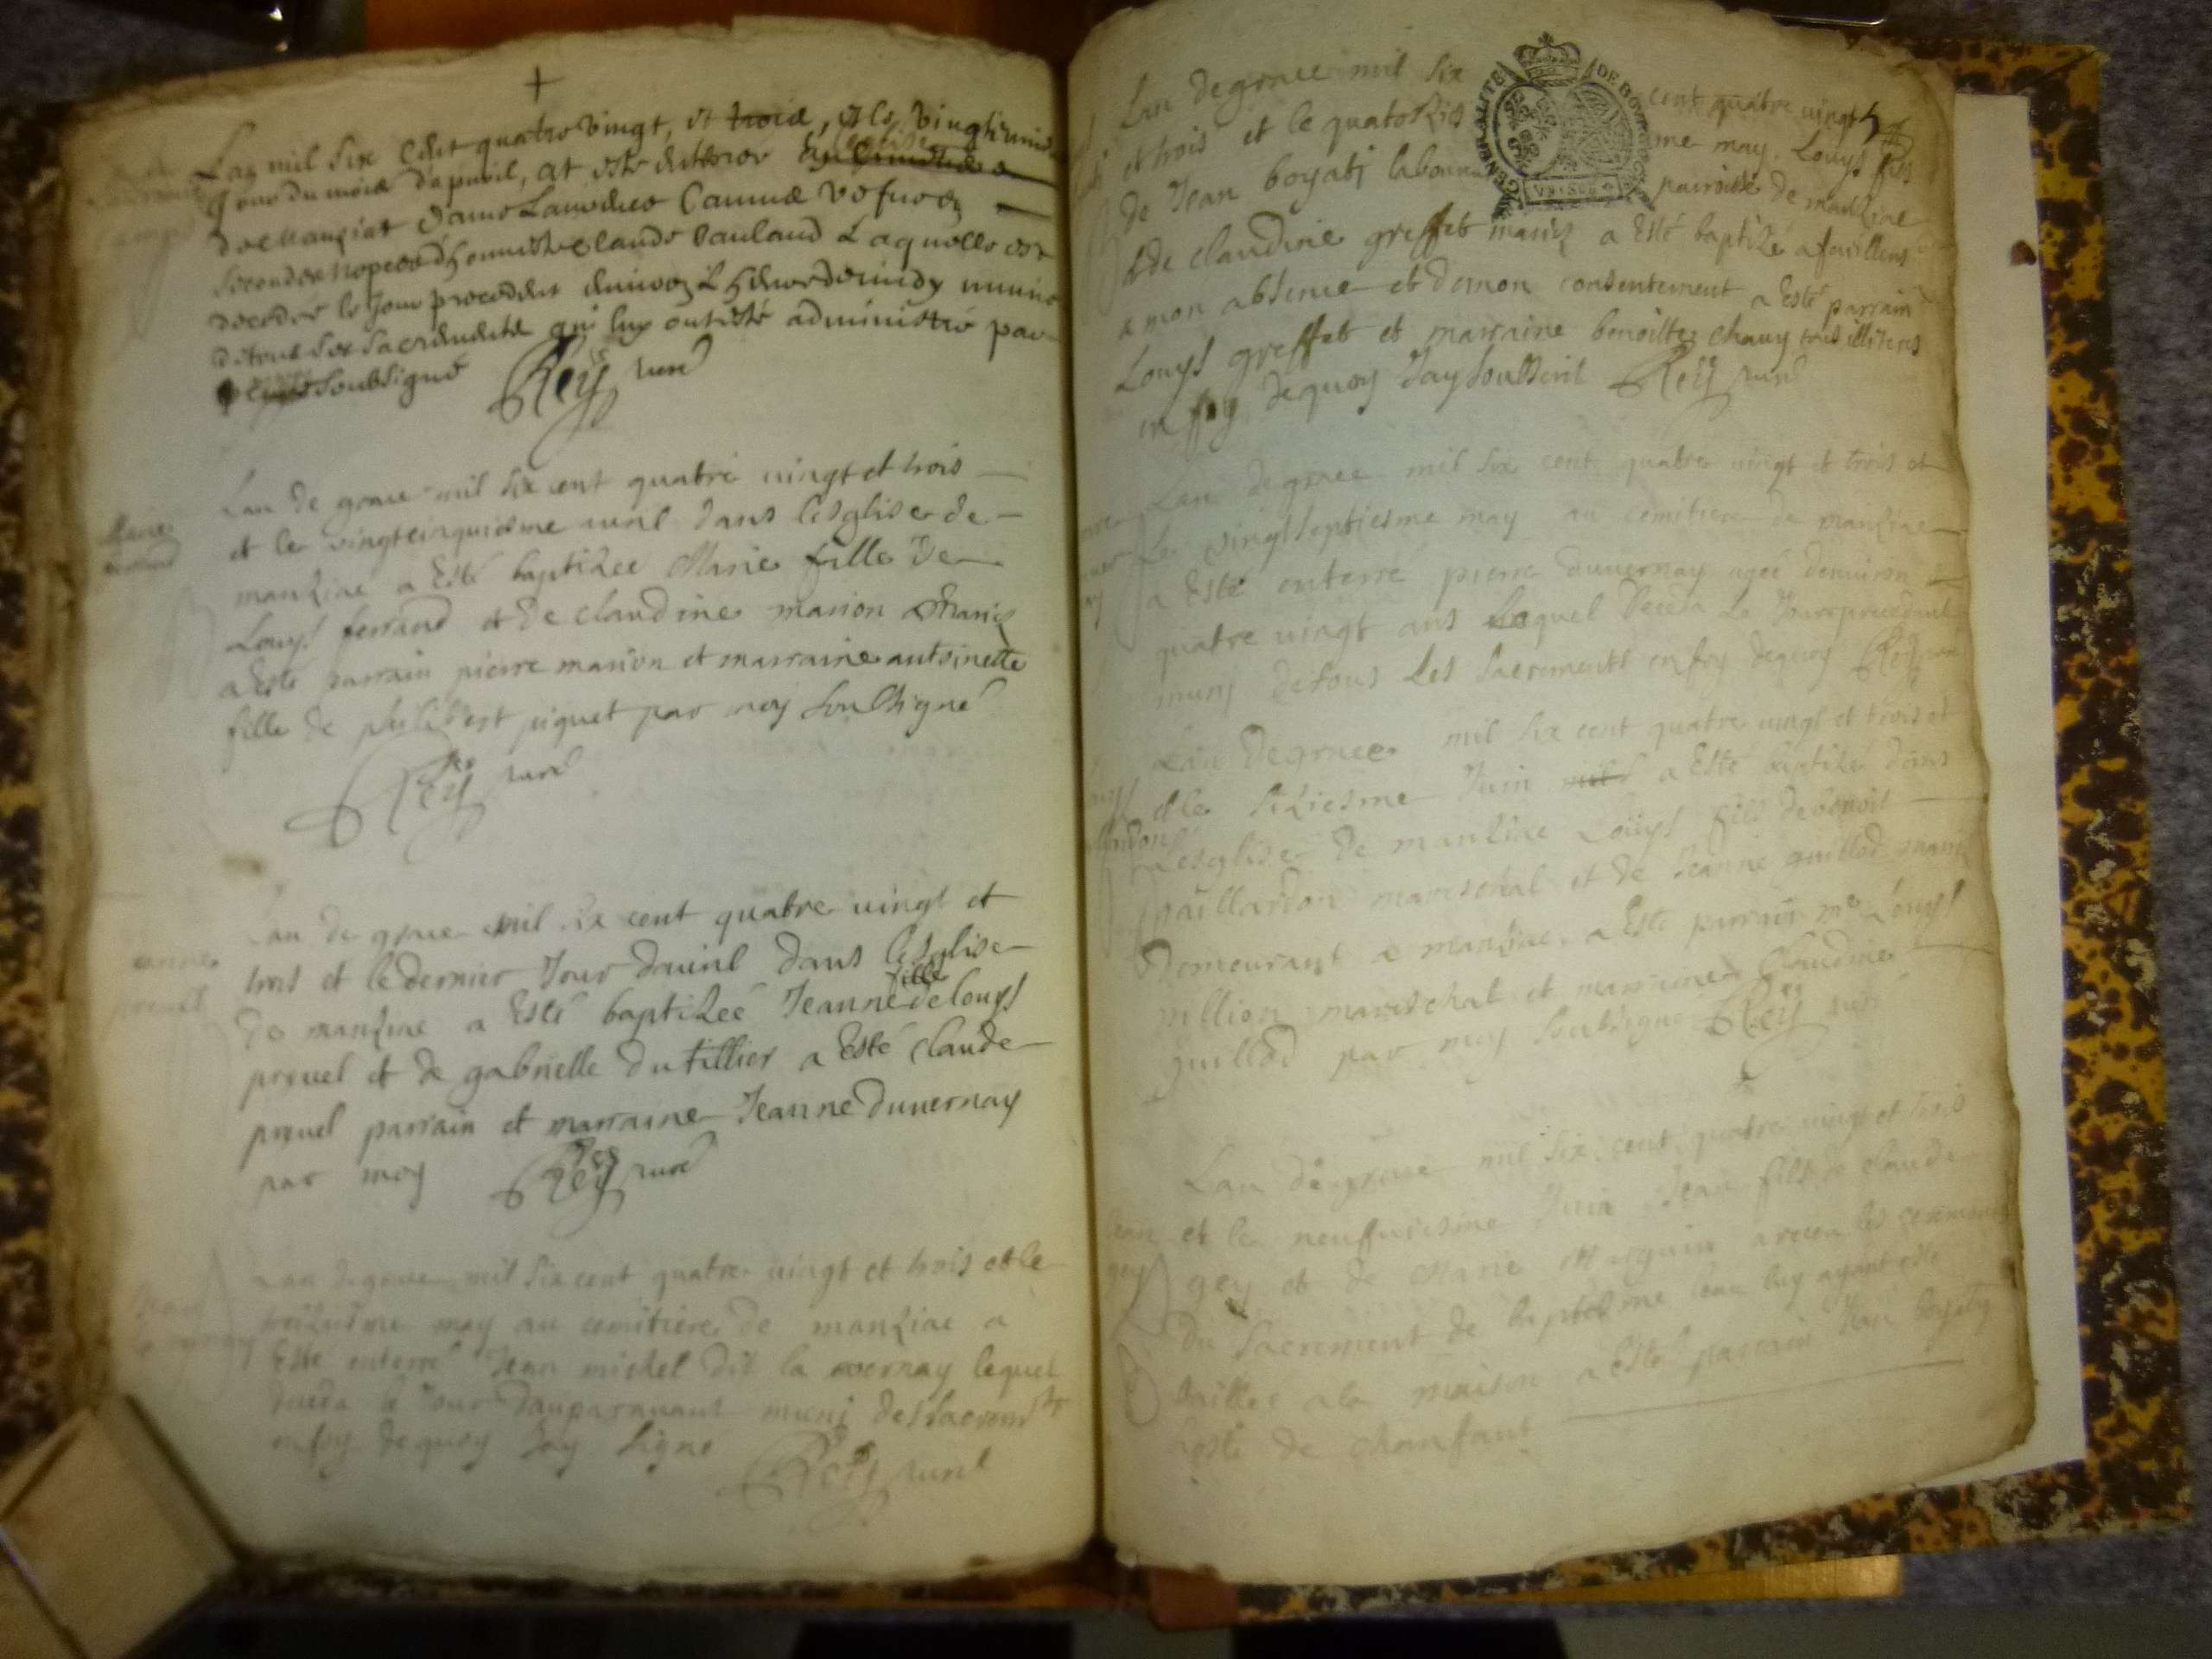 Lan mil six cent quatre vingt, et trois, et le vingtiesme
Jour du mois dapuril, at este enterree
de Manziat dame Laurence Camus vefue en
secondes nopces dhonneste Claude Pauland Laquelle est
decedee le Jour precedent munie
de tous ses sacrements qui luy ont esté administré par
soubsigné Rey curé
Lan de grace mil six cent quatre vingt et trois
et le vingtcinquiesme auril dans lesglise de
manziac a Esté baptizée Marie fille de
Louys ferrand et de claudine marion
a Esté parrain pierre marion et marraine antoinette
fille de philibert piquet par moy soubsigné
Rey curé
Lan de grace mil six cent quatre vingt et
trois et le dernier Jour dauril dans lesglise
fille
de manziac a Esté baptizée Jeanne de louys
preuel et de gabrielle dutillier a Esté claude
preuel parrain et marraine Jeanne duuernay
par moy Rey curé
Lan de grace mil six cent quatre vingt et trois et le
may au cemitiere de manziac a
Esté enterré Jean michel dit la vernay lequel
deceda le Jour dauparauant muni des sacrem
en foy dequoy Jay signé Rey curé
GENERALITE DE BO
Lan de grace mil six cent quatre vingt
et trois et le quatorziesme may. Louys fils
de Jean boyati laboureur parroisse de manziac
et de claudine greffet mariez a Esté baptizé a feuillens
a mon absence et de mon consentement a Esté parrain
Louys greffet et marraine benoitte chauy tous illiteres
en foy dequoy Jay soubscrit Rey curé
Lan de grace mil six cent quatre vingt et trois et
Le vingtseptiesme may au cemitiere de manziac
a Esté enterré pierre duuernay agé denuiron
quatre vingt ans Lequel deceda le Jour precedent
muny de tous Les sacrements en foy dequoy Rey curé
Lan de grace mil six cent quatre vingt et trois et
et le siziesme Juin a Esté baptizé dans
Lesglise de manziac Louys fils de benoit
paillardon mareschal et de Jeanne guillod mariez
demeurant a manziac, a Esté parrain me Louys
million mareschal et marraine Claudine
guillod par moy soubsigné Rey curé
Lan de grace mil six cent quatre vingt et trois
et le neufuiesme Juin Jean fils de claude
gey et de Marie a receu les ceremonies
du sacrement de baptesme leau luy ayant esté
baillée a la maison a Esté parrain Jean boyaty
hoste de chanfant